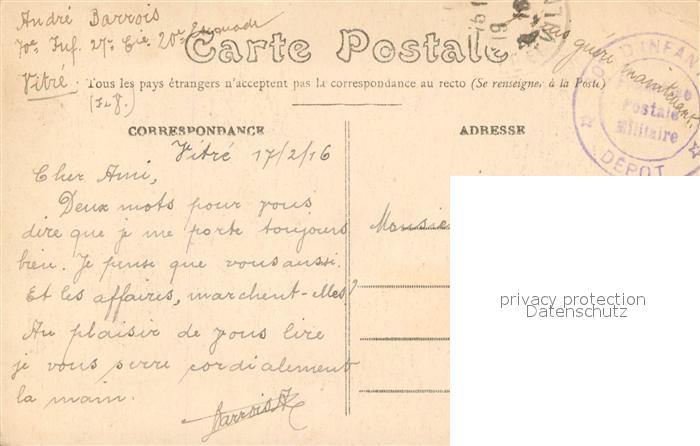 André Barrois
70e Inf. 27e Cie 20e Escouade
Vitré.
(I.&V.)
Carte Postale
pas guéri maintenant.
Tous les pays étrangers n'acceptent pas la correspondance au recto (Se renseigner à la Poste)
D'INFANTERIE
Postale
Militaire
DÉPOT
CORRESPONDANCE
ADRESSE
Vitré 17/2/16
Cher Ami,
Deux mots pour vous
dire que je me porte toujours
bien. Je pense que vous aussi.
Et les affaires, marchent-elles?
Au plaisir de vous lire
je vous serre cordialement
la main.
Barrois A
privacy protection
Datenschutz